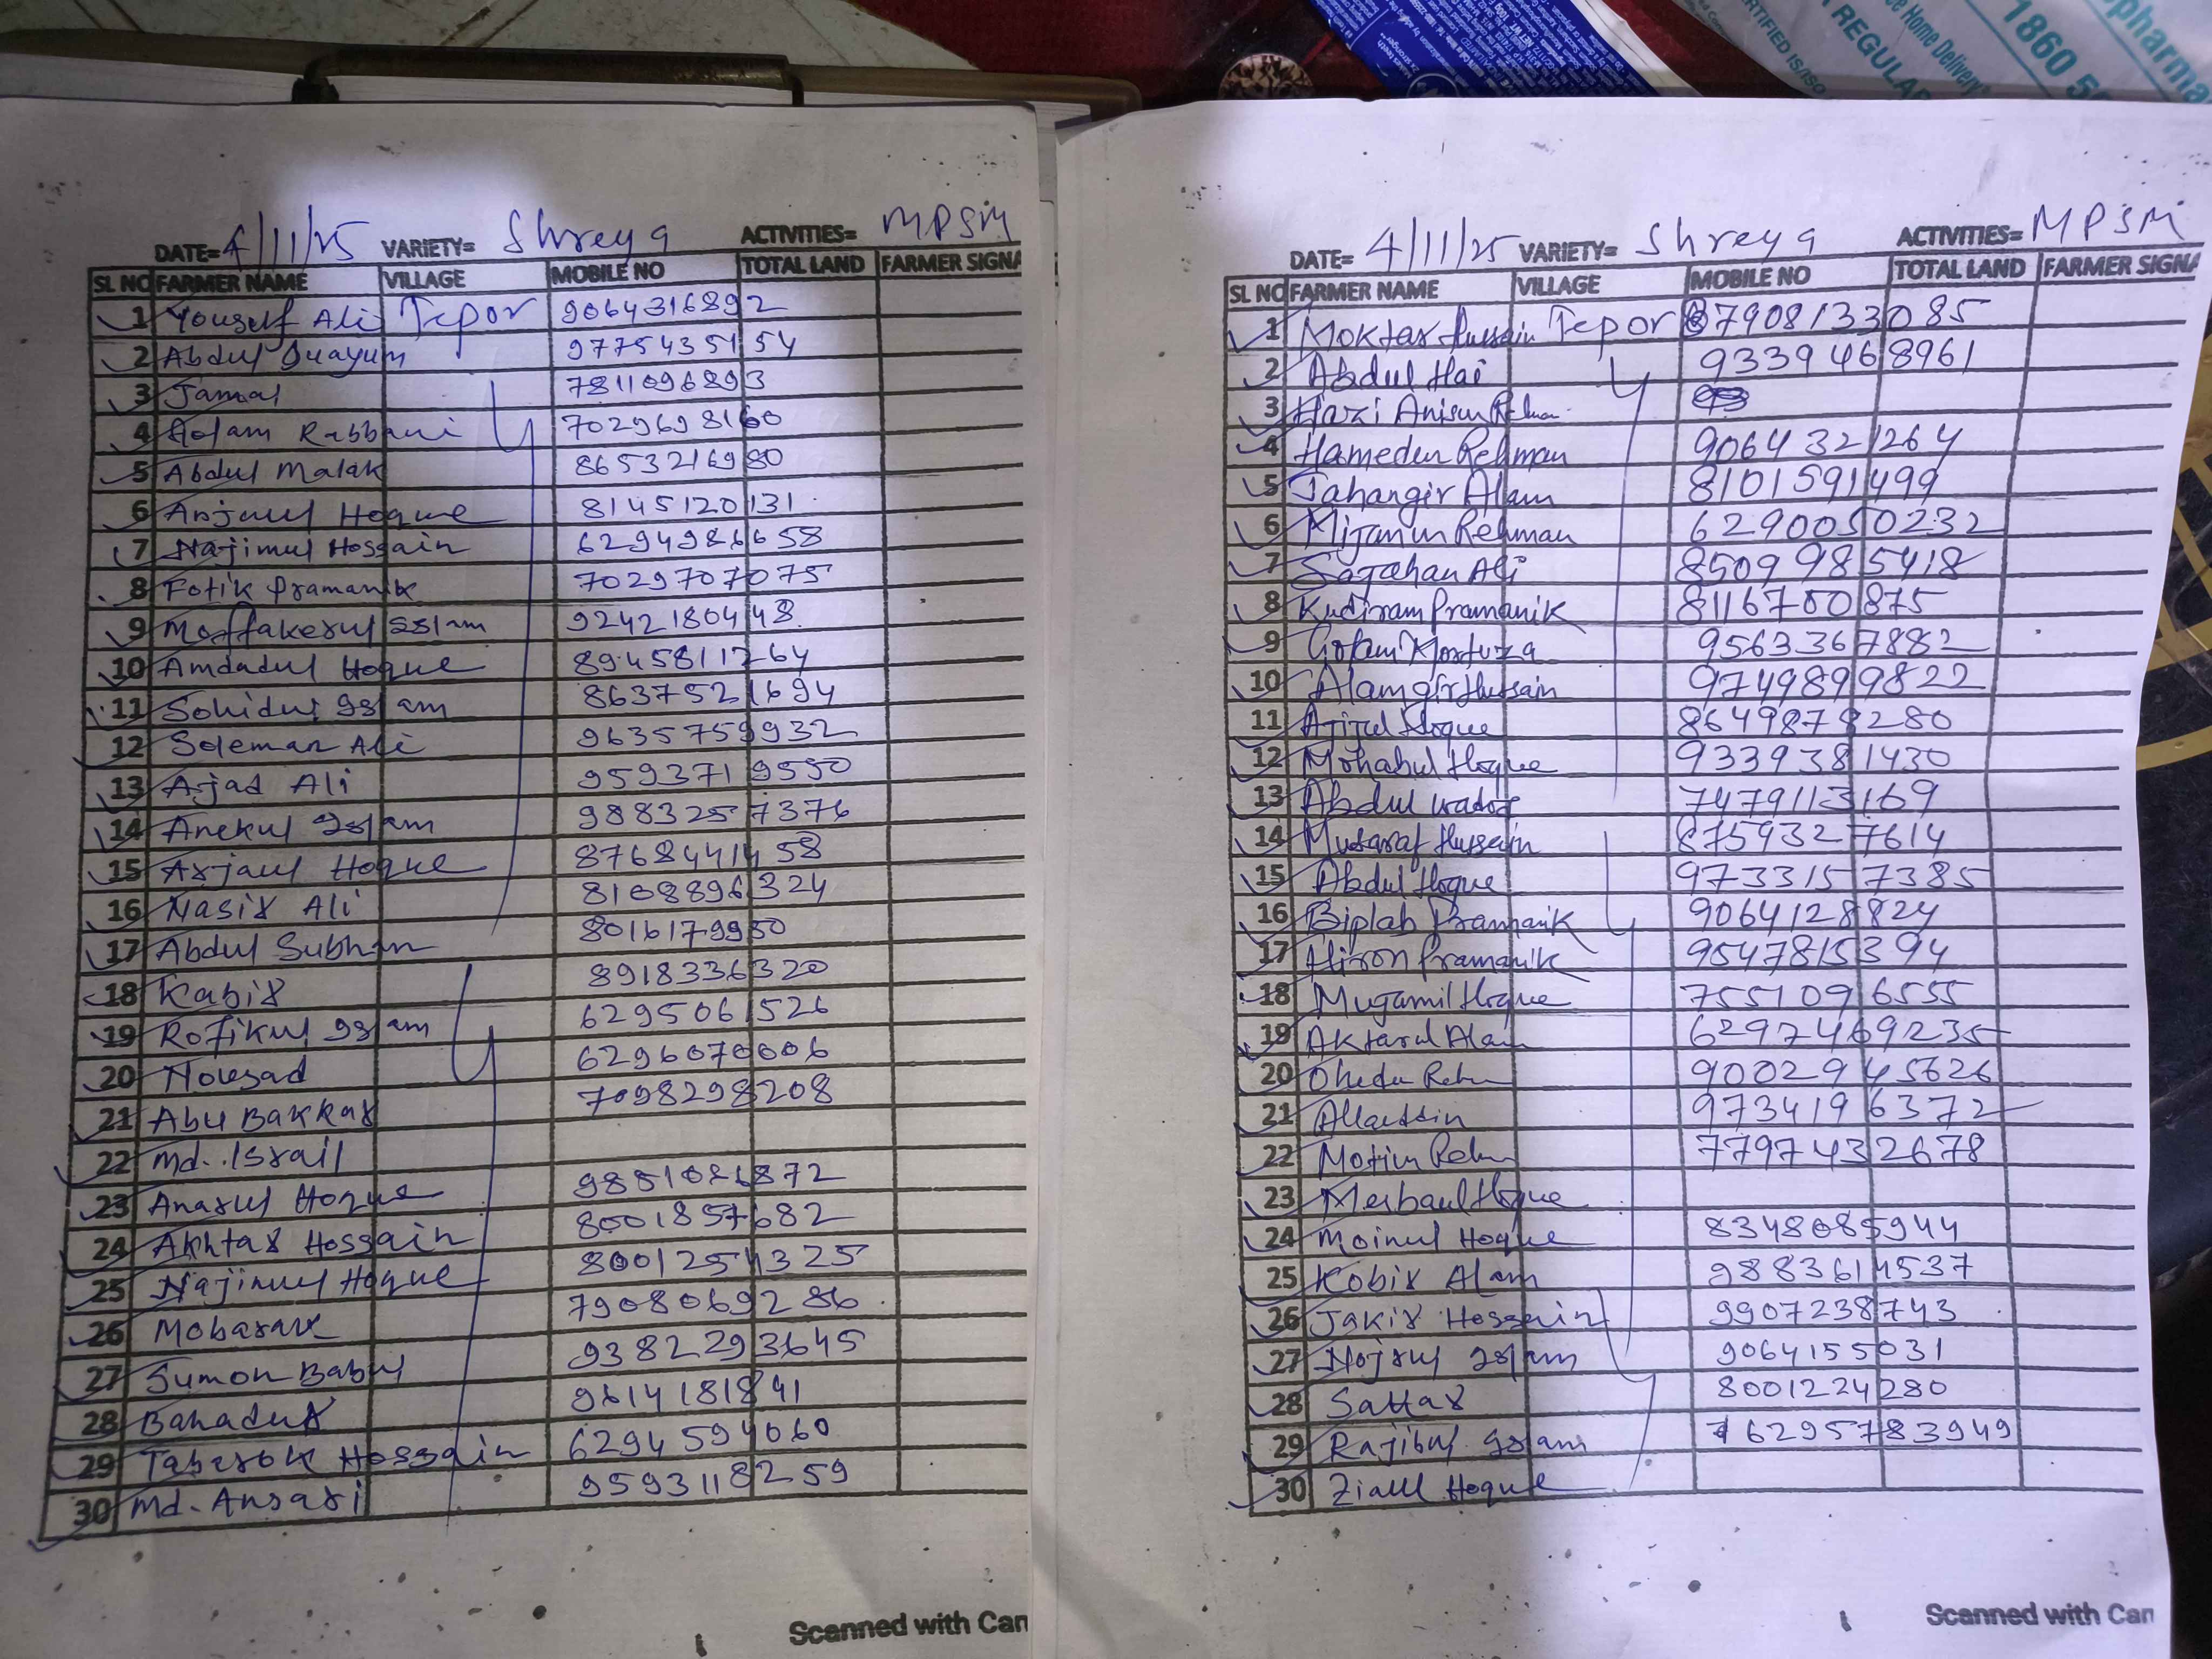 DATE= 4/11/25 VARIETY= Shreya ACTIVITIES= MPSM
SL NO FARMER NAME VILLAGE MOBILE NO TOTAL LAND FARMER SIGNA
1 Yousuf Ali Tepor 9064316892
2 Abdul Quayum 9775435154
3 Jamal 7811096893
4 Golam Rabbani 7029698160
5 Abdul Malak 8653216980
6 Anjaul Hoque 8145120131
7 Najimul Hossain 6294986658
8 Fotik Pramanik 7029707075
9 Moffakerul Islam 9242180448
10 Amdadul Hoque 8945811264
11 Sohidul Islam 8637521694
12 Soleman Ali 9635759932
13 Arjad Ali 9593719550
14 Anekul Islam 9883257376
15 Arjaul Hoque 8768441458
16 Nasir Ali 8108896324
17 Abdul Subhan 8016179950
18 Kabir 8918336320
19 Rofikul Islam 6295061526
20 Nousad 6296070006
21 Abu Bakkar 7098298208
22 Md. Israil
23 Anarul Hoque 9851086872
24 Akhtar Hossain 8001857682
25 Najimul Hoque 8001254325
26 Mobarak 7908069286
27 Sumon Babu 9382293645
28 Bahadur 9614181841
29 Tabarok Hossain 6294594060
30 Md. Ansari 9593118259
Scanned with Can
DATE= 4/11/25 VARIETY= Shreya ACTIVITIES= MPSM
SL NO FARMER NAME VILLAGE MOBILE NO TOTAL LAND FARMER SIGNA
1 Moktar Hussain Tepor 7908133085
2 Abdul Hai 9339468961
3 Hazi Anisur Rehman
4 Hamedur Rehman 9064321264
5 Jahangir Alam 8101591499
6 Mijanur Rehman 6290050232
7 Sajahan Ali 8509985418
8 Kudiram Pramanik 8116700875
9 Golam Mortuza 9563367882
10 Alamgir Hussain 9749899822
11 Ajijul Hoque 8649878280
12 Mohabul Hoque 9339381430
13 Abdul 7479113169
14 Musaraf Hussain 8759327614
15 Abdul Hoque 9733157385
16 Biplab Pramanik 9064128824
17 Hiron Pramanik 9547815394
18 Mujamil Hoque 7551096555
19 Aktarul Alam 6297469235
20 9002945626
21 Allauddin 9734196372
22 7797432678
23 Mesbaul Hoque
24 Moinul Hoque 8348085944
25 Kobir Alam 9883614537
26 Jakir Hossain 9907238743
27 Nojrul Islam 9064155031
28 Sattar 8001224280
29 Rajibul Islam 6295783949
30 Ziaul Hoque
Scanned with Can